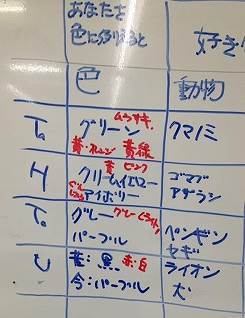 あなたを
色に例えると
好き
色
動物
T.
グリーン
ムラサキ.
クマノミ
黄・オレンジ 黄緑
H
黄 ピンク
クリームイエロー
アイボリー
ゴマフ
アザラシ
T.
グレー
パープル
ペンギン
サギ
U
昔:黒 赤・白
今:パープル
ライオン
犬